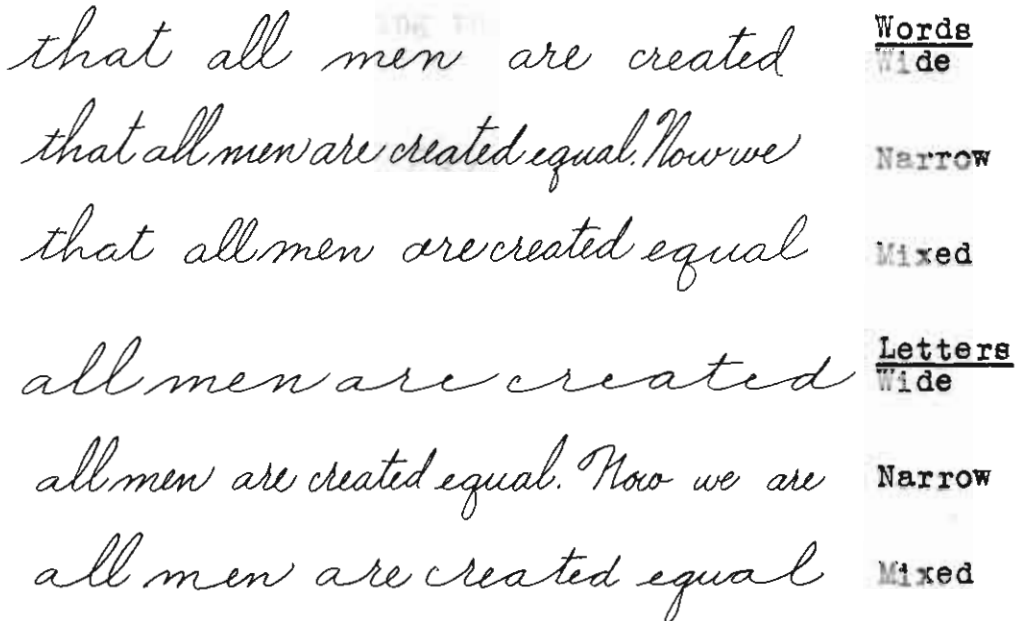 that all men are created Words
Wide
that all men are created equal. Now we Narrow
that all men are created equal Mixed
Letters
all men are created Wide
all men are created equal. Now we are Narrow
all men are created equal Mixed